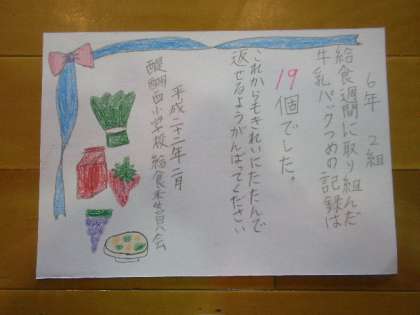 6年 2組
給食週間に取り組んだ
牛乳パックつめの記録は
19個でした。
これからもきれいにたたんで
返せるようがんばってください
平成二十二年二月
醍醐西小学校 給食委員会